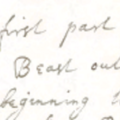 first part
Beast out
beginning